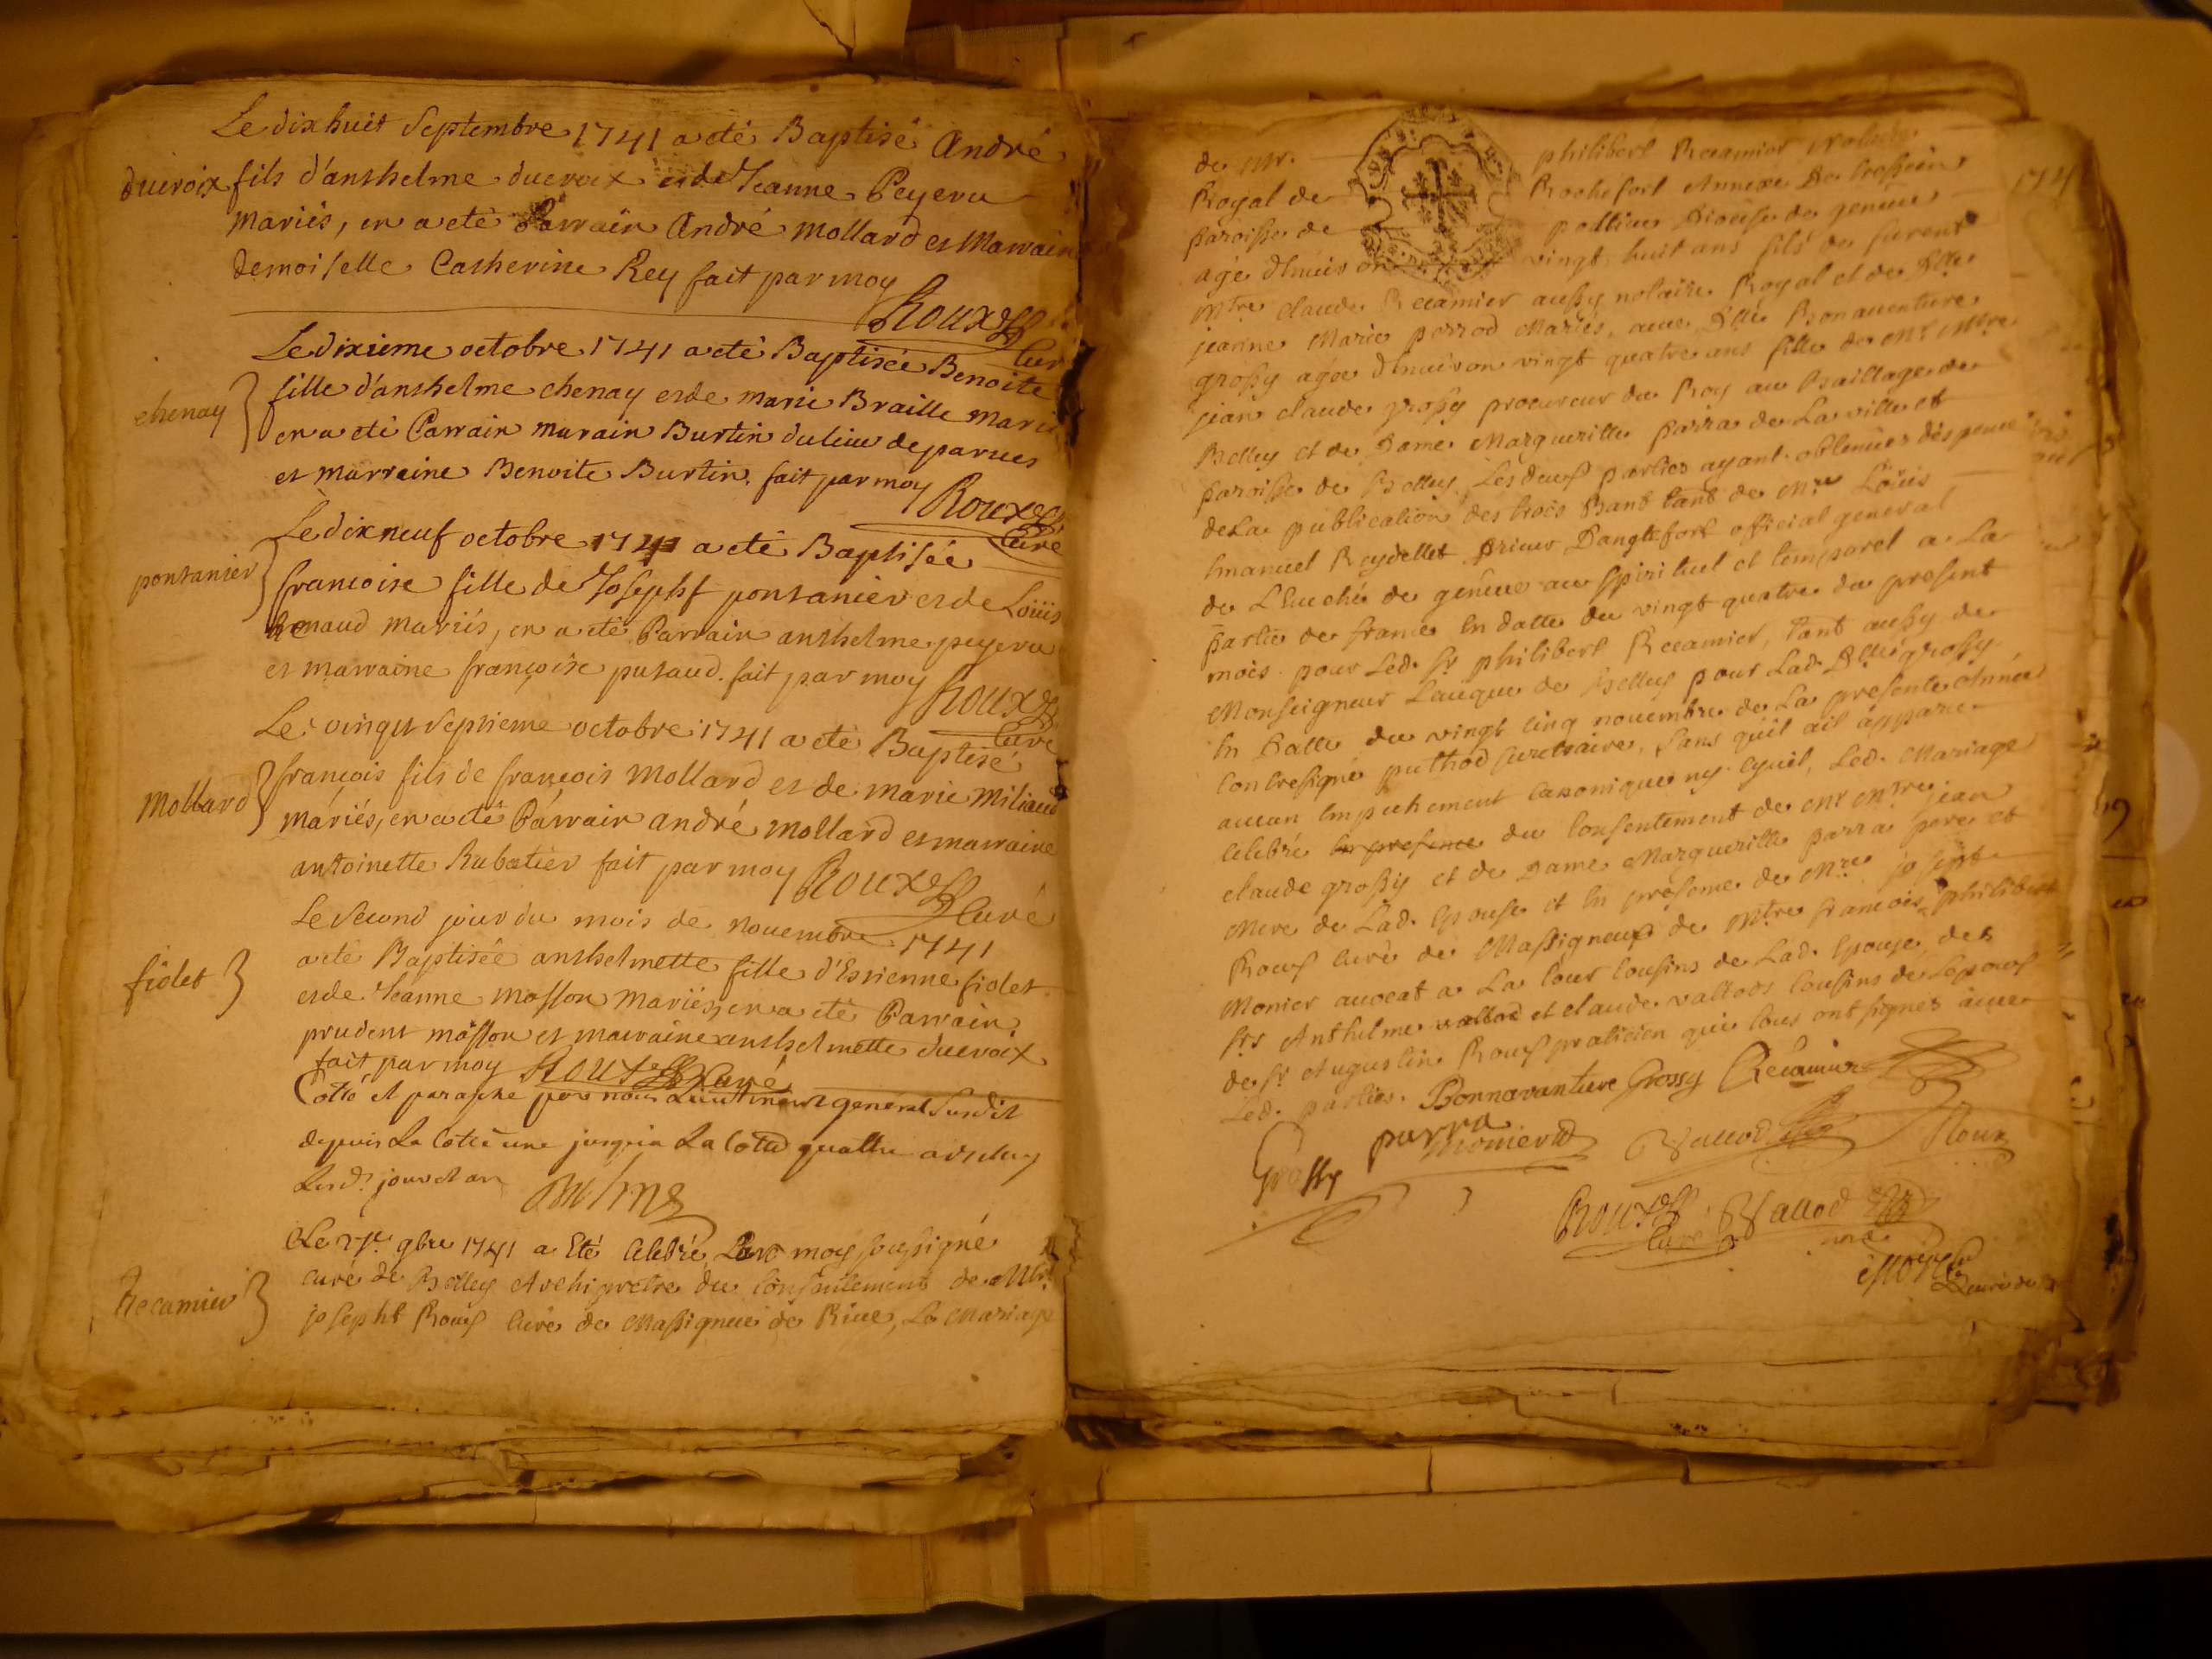 Le dix huit Septembre 1741 a eté Baptisé André
ducroix fils d'anthelme ducroix et de Jeanne Peyeru
mariés, en a eté Parrain André mollard et Marraine
demoiselle Catherine Rey fait par moy
Roux
Curé
Le dixieme octobre 1741 a eté Baptisée Benoite
chenay
fille d'anthelme chenay et de marie Braille
en a eté Parrain Burtin du lieu de
et marreine Benoite Burtin. fait par moy
Roux
Curé
Le dix neuf octobre 1741 a eté Baptisée
pontanier
francoise fille de Joseph pontanier et de Loüis
Renaud mariés, en a eté Parrain anthelme peyeru
et marraine françoise putaud. fait par moy
Roux
Curé
Le vingt Septieme octobre 1741 a eté Baptisé
Mollard
françois fils de françois Mollard et de marie Miliaud
máriés, en a eté Parrain andré mollard et marraine
antoinette Rubatier fait par moy Roux
Curé
Le Second jour du mois de novembre 1741
fiolet
a eté Baptisée anthelmette fille d'Estienne fiolet
et de Jeanne masson mariés, en a eté Parrain
prudent masson et marraine anthelmette ducroix
fait par moy Roux Curé
Cotté et paraphé par nous Lieutenant general Susdit
depuis La Cotte une jusqu'a La Cotte quattre
Lesd. jour et an
Le 9bre 1741 a Eté Celebré, Par moy soussigné
curé de Belley Archipretre du Consentement de Mre
Recamier
josepht Roux Curé de Massigneu de Rive, Le Mariage
de Mr. philibert Recamier Notaire
Royal de Rochefort Annexe De
paroisse de Diocese de geneve
agé d'Environ vingt huit ans fils de
Mtre Claude Recamier aussy notaire Royal et de Dlle
jeanne Marie perrod Mariés, avec Dlle Bonaventure
grossy agée d'Environ vingt quatre ans fille de Mr. Mtre
jean claude grossy procureur du Roy au Baillage de
Belley et de Dame Margueritte parra de La ville et
paroisse de Belley, Les deux parties ayant obtenues dispence
de La publication des trois Bans tant de Mre Loüis
Emanuel Reydellet prieur Danglefort official general
de L'Eveché de geneve au spirituel et temporel a La
partie de france En datte du vingt quatre du present
mois pour Led. sr philibert Recamier, tant aussy de
Monseigneur L'evêque de Belley pour Lad. Dlle grossy
En Datte du vingt cinq novembre de La presente Année
Contresigné puthod secretaire, sans qu'il ait apparu
aucun Empechement canonique ny Civil, Led. Mariage
celebré en presence du consentement de Mr Mtre jean
claude grossy et de Dame Margueritte parra pere et
Mere de Lad. Epouse et En presence de Mre josept
Roux curé de Massigneux de Mtre francois philibert
Monier avocat a La Cour Cousins de Lad. Epouse, des
srs Anthelme vallod et claude vallods Cousins de L'epoux
de sr Augustin Roux praticien qui tous ont signés avec
Led. parties. Bonnavanture Grossy Recamier
parra
Grossy Monier Vallod Roux
Roux Curé Vallod